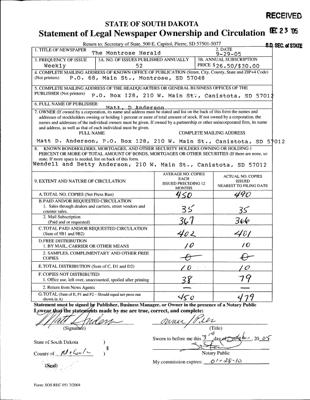 RECEIVED
STATE OF SOUTH DAKOTA
Statement of Legal Newspaper Ownership and Circulation DEC 23 '05
Return to: Secretary of State, 500 E. Capitol, Pierre, SD 57501-5077
S.D. SEC. of STATE
1. TITLE OF NEWSPAPER
The Montrose Herald
2. DATE
9-29-05
3. FREQUENCY OF ISSUE
Weekly
3A. NO. OF ISSUES PUBLISHED ANNUALLY
3B. ANNUAL SUBSCRIPTION
PRICE $26.50/$30.00
4. COMPLETE MAILING ADDRESS OF KNOWN OFFICE OF PUBLICATION (Street, City, County, State and ZIP+4 Code)
(Not printers) P.O. 68, Main St., Montrose, SD 57048
5. COMPLETE MAILING ADDRESS OF THE HEADQUARTERS OR GENERAL BUSINESS OFFICES OF THE
PUBLISHER (Not printers) P.O. Box 128, 210 W. Main St., Canistota, SD 57012
6. FULL NAME OF PUBLISHER
Matt. D Anderson
7. OWNER (If owned by a corporation, its name and address must be stated and list on the back of this form the names and
addresses of stockholders owning or holding 1 percent or more of total amount of stock. If not owned by a corporation, the
names and addresses of the individual owners must be given. If owned by a partnership or other unincorporated firm, its name
and address, as well as that of each individual must be given.
FULL NAME COMPLETE MAILING ADDRESS
Matt D. Anderson, P.O. Box 128, 210 W. Main St., Canistota, SD 57012
8. KNOWN BONDHOLDERS, MORTGAGES, AND OTHER SECURITY HOLDERS OWNING OR HOLDING 1
PERCENT OR MORE OF TOTAL AMOUNT OF BONDS, MORTGAGES OR OTHER SECURITIES (If there are none, so
state. If more space is needed, list on back of this form.
Wendell and Betty Anderson, 210 W. Main St., Canistota, SD 57012
9. EXTENT AND NATURE OF CIRCULATION
AVERAGE NO. COPIES
EACH
ISSUED PRECEDING 12
MONTHS
ACTUAL NO. COPIES
ISSUED
NEAREST TO FILING DATE
A. TOTAL NO. COPIES (Net Press Run) 450 490
B. PAID AND/OR REQUESTED CIRCULATION
1. Sales through dealers and carriers, street vendors and
counter sales. 35 35
2. Mail Subscription
(Paid and/or requested) 367 366
C. TOTAL PAID AND/OR REQUESTED CIRCULATION
(Sum of 9B1 and 9B2) 402 401
D. FREE DISTRIBUTION
1. BY MAIL, CARRIER OR OTHER MEANS 10 10
2. SAMPLES, COMPLIMENTARY AND OTHER FREE
COPIES 0 0
E. TOTAL DISTRIBUTION (Sum of C, D1 and D2) 10 10
F. COPIES NOT DISTRIBUTED
1. Office use, left over, unaccounted, spoiled after printing 38 79
2. Return from News Agents
G. TOTAL (Sum of E, F1 and F2 - Should equal net press run
shown in A) 450 479
Statement must be signed by Publisher, Business Manager, or Owner in the presence of a Notary Public
I swear that the statements made by me are true, correct, and complete:
Matt Anderson
(Signature)
(Title)
State of South Dakota )
Sworn to before me this
County of )
Notary Public
(Seal)
My commission expires:
Form: SOS REC 051 7/2004